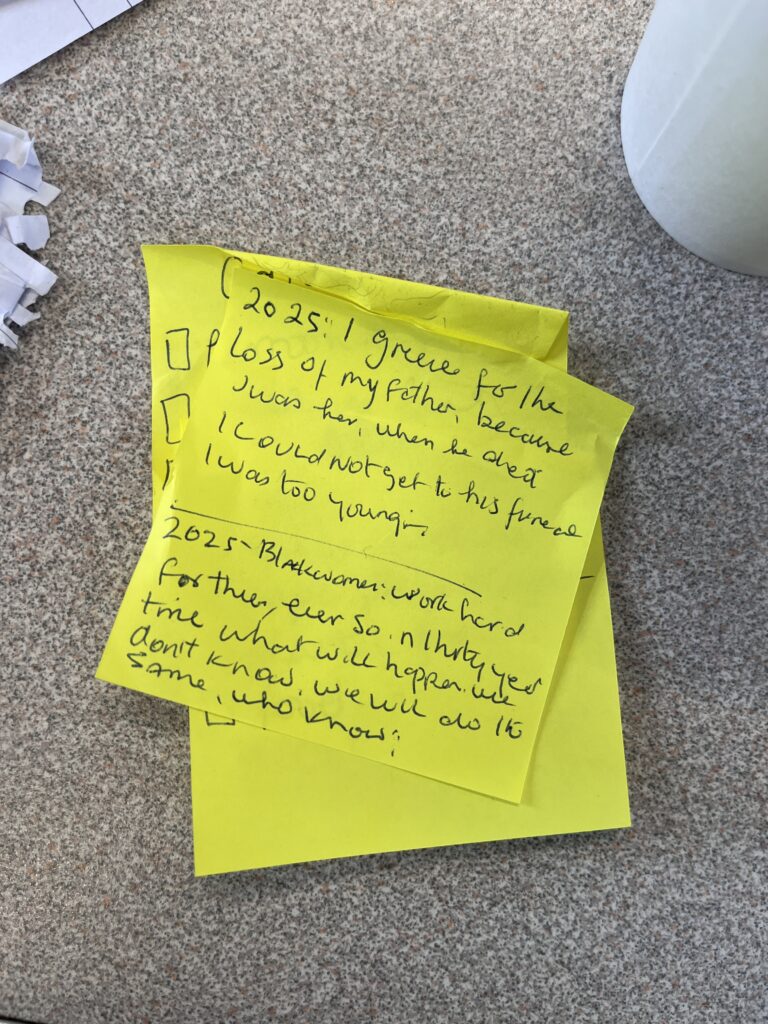 2025: I grieve for the
loss of my father, because
I was her, when he died
I could not get to his funeral
I was too young.
2025 - Black women: work hard
for thee, ever so in thirty year
time what will happen. we
don't know. we will do the
same, who know: